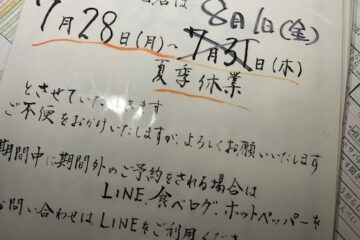 店は 8月1日(金)
7月28日(月)〜7月31日(木)
夏季休業
とさせていただきます
ご不便をおかけいたしますが、よろしくお願いいたします
期間中に期間外のご予約をされる場合は
LINE、食べログ、ホットペッパーを
お問い合わせはLINEをご利用くださ